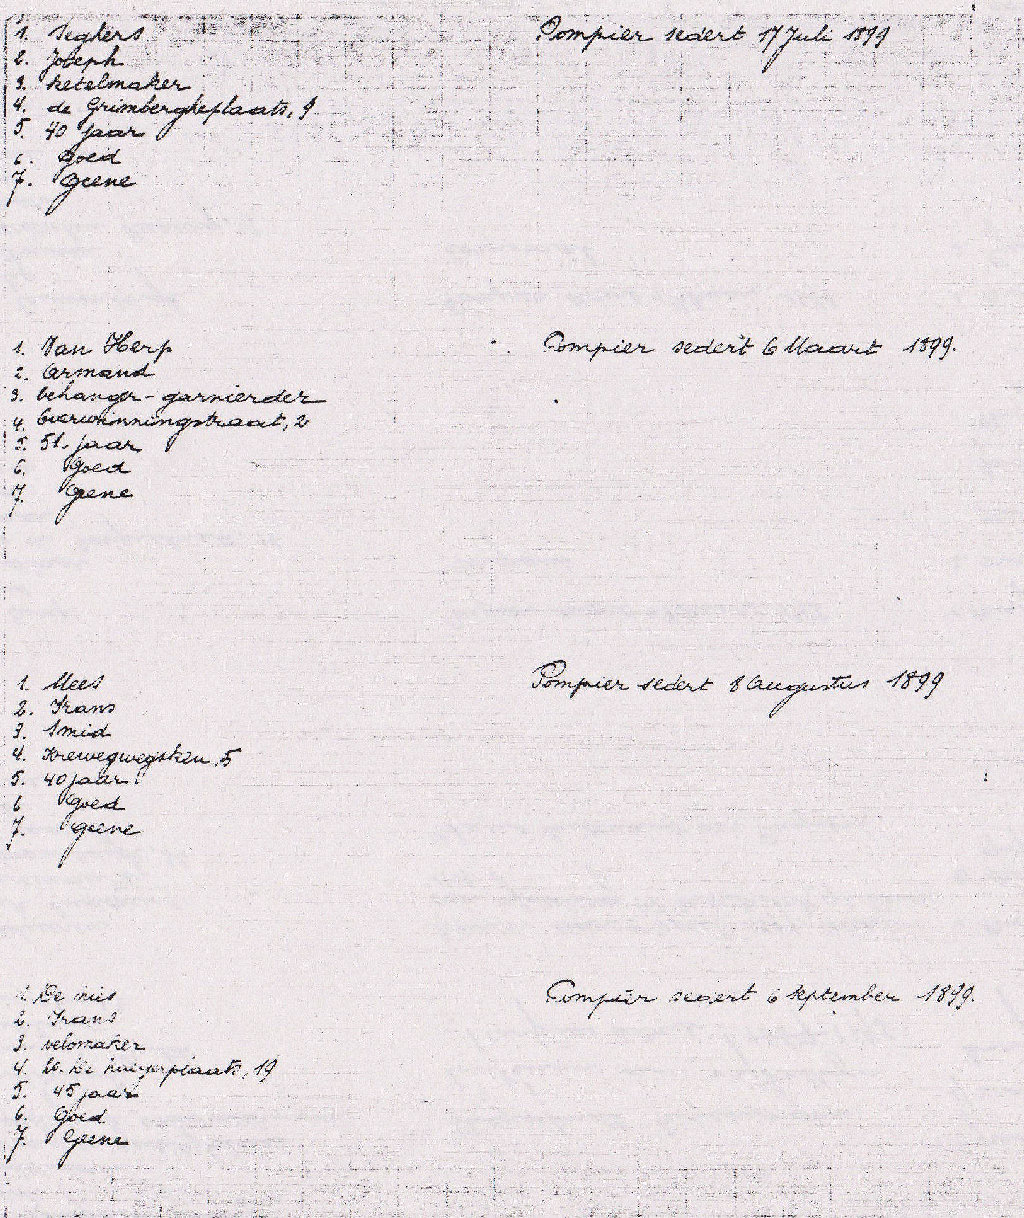 1. Seghers
Pompier sedert 17 Juli 1899
2. Joseph
3. ketelmaker
4. de Grimbergheplaats, 9
5. 40 jaar
6. Goed
7. Geene
1. Van Herp
Pompier sedert 6 Maart 1899.
2. Armand
3. behanger-garnierder
4. Overwinningstraat, 2
5. 51. jaar
6. Goed
7. Geene
1. Mees
Pompier sedert 8 Augustus 1899
2. Frans
3. Smid
4. 5
5. 40 jaar
6 Goed
7. Geene
1. De
Pompier sedert 6 September 1899.
2. Frans
3. velomaker
4. 19
5. 45 jaar
6. Goed
7. Geene